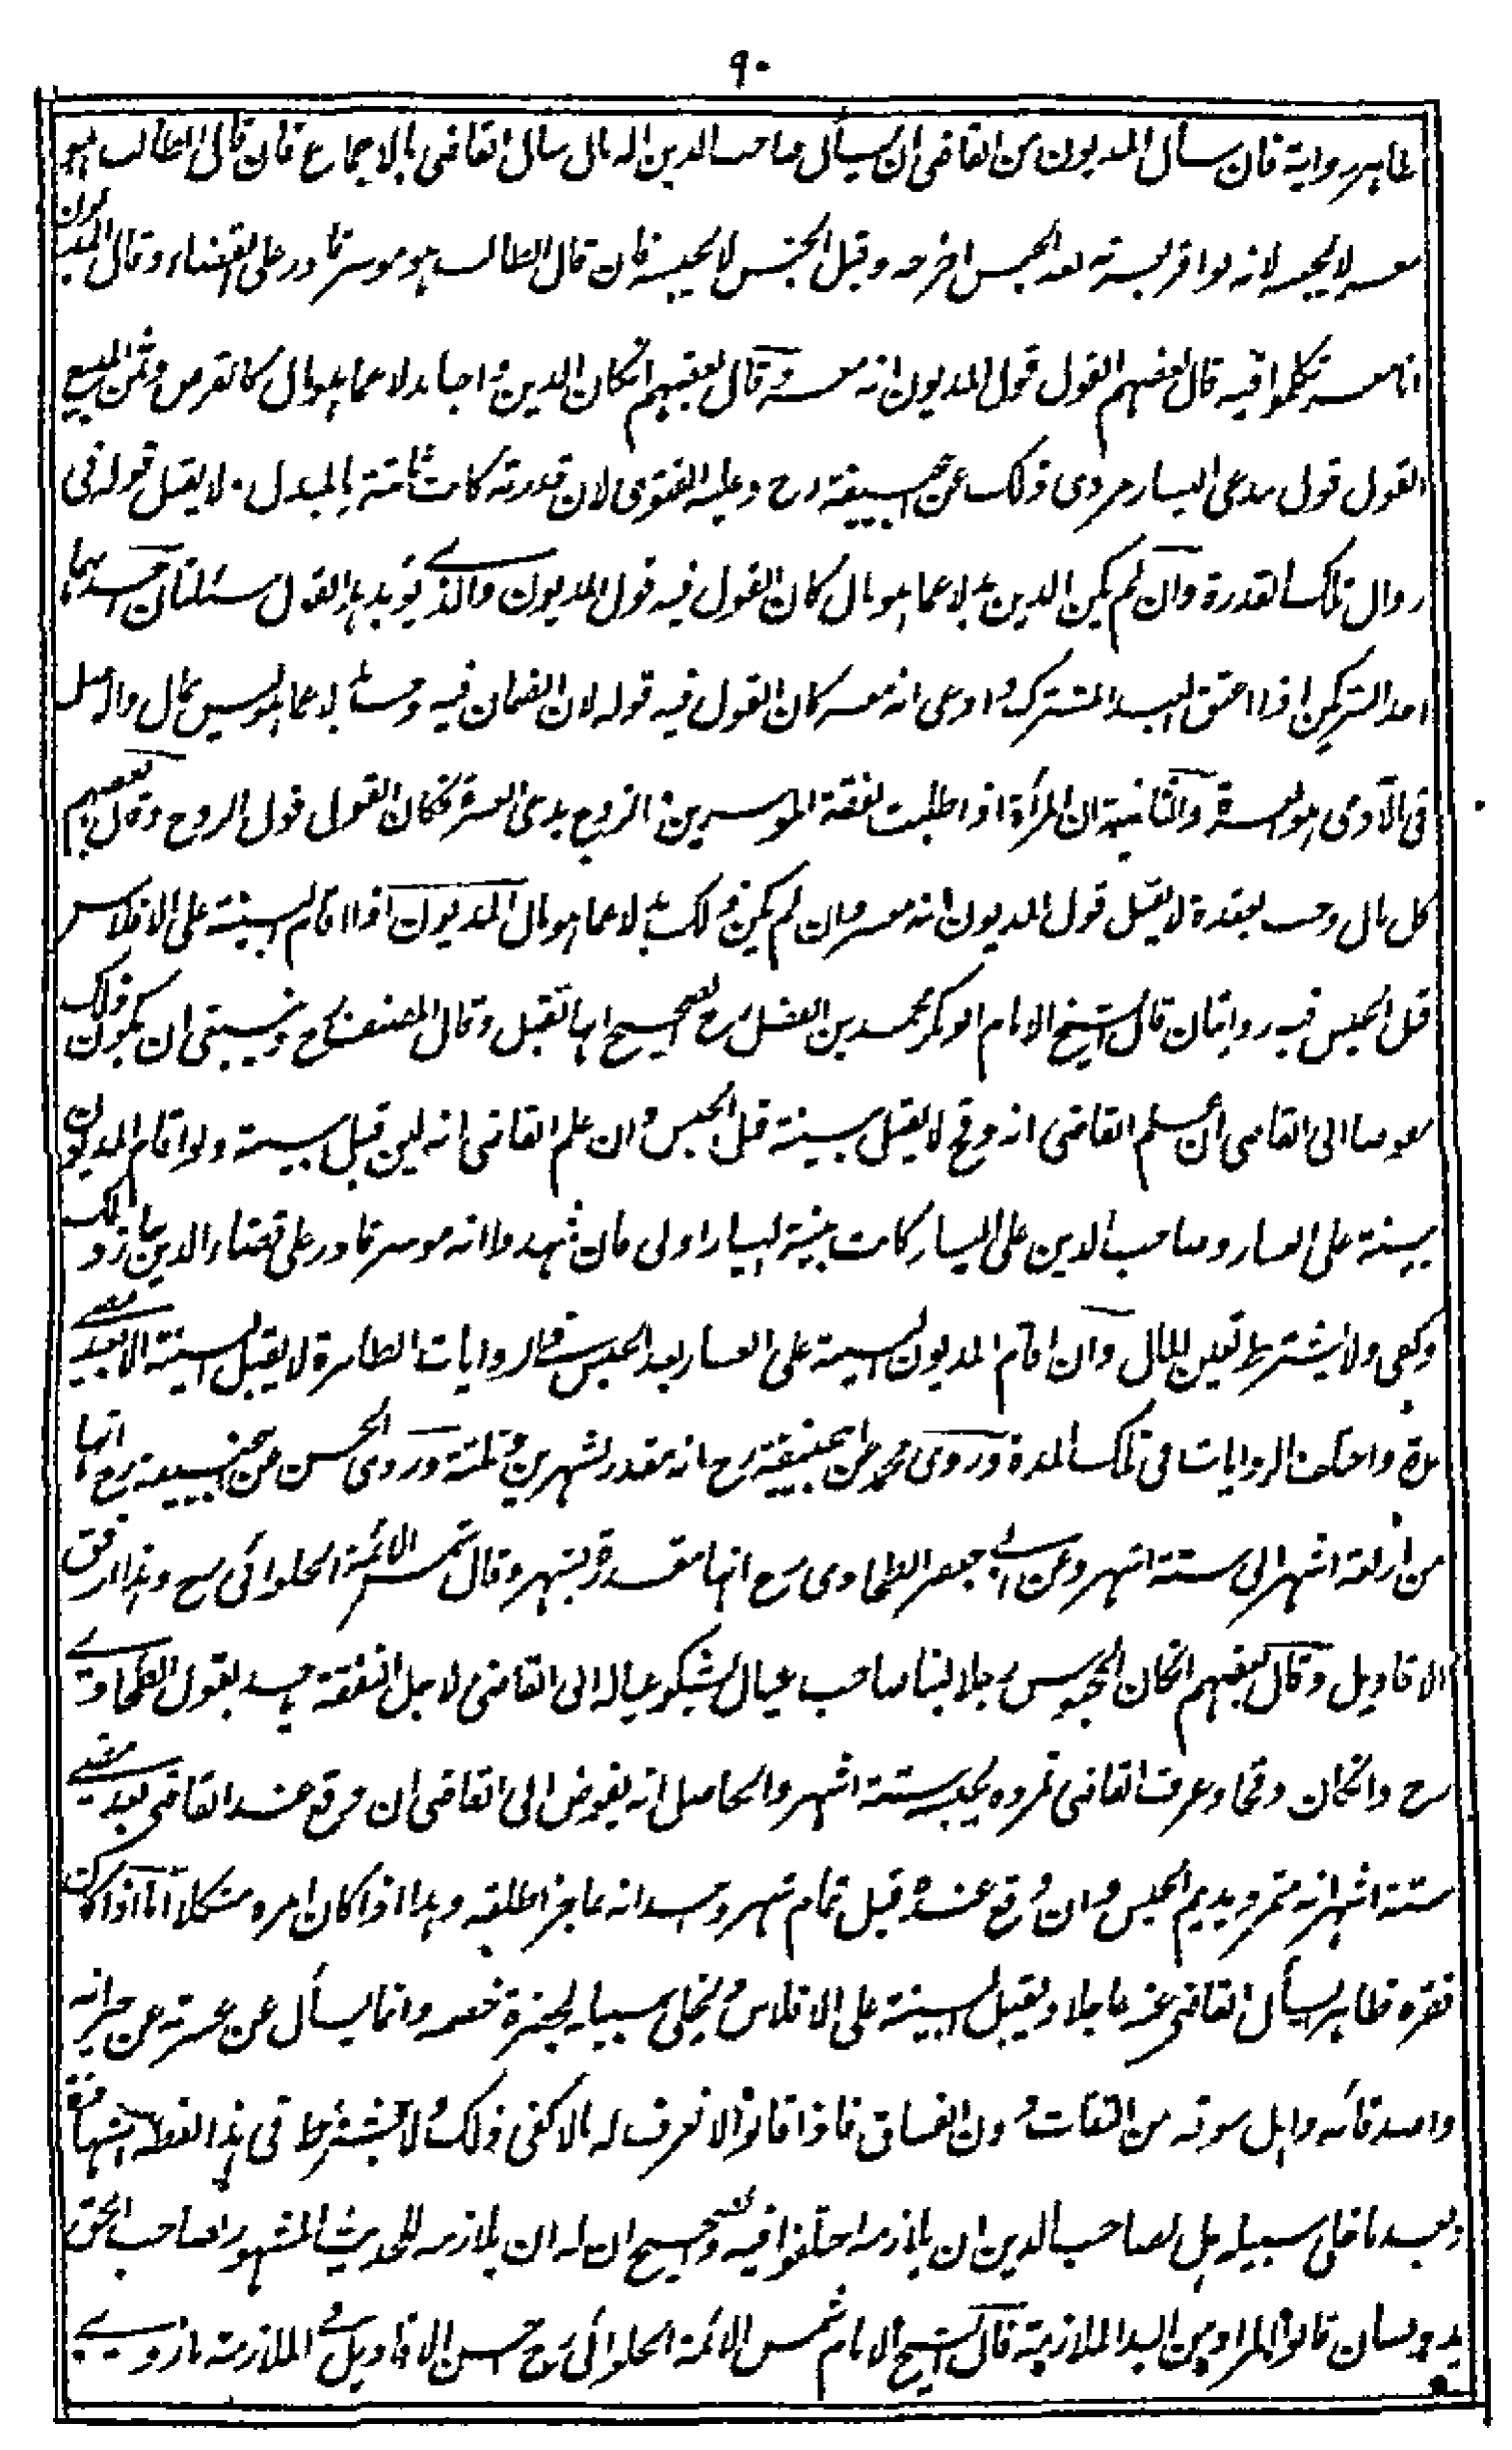 ٩٠
ظاهر رواية فان سأل المديون من القاضى ان يسأل صاحب الدين اله مال سأل القاضى بالاجماع فان قال الطالب هو
معسر لا يحبسه لانه لو اقر بعسرته بعد الحبس اخرجه وقبل الحبس لا يحبسه فان قال الطالب هو موسر قادر على القضاء وقال المديون
انا معسر تكلموا فيه قال بعضهم القول قول المديون انه معسر وقال بعضهم انكان الدين واجبا بدلا عما هو مال كالقرض وثمن المبيع
القول قول مدعى اليسار مروى ذلك عن ابيحنيفة رح وعليه الفتوى لان قدرته كانت ثابتة بالمبدل لا يقبل قوله فى
زوال تلك القدرة وان لم يكن الدين بدلا عما هو مال كان القول فيه قول المديون والذى يؤيد هذا القول مسئلتان احدهما
احد الشريكين اذا اعتق العبد المشترك وادعى انه معسر كان القول فيه قوله لان الضمان فيه وجب بدلا عما ليس بمال والاصل
فى الآدمى هو العسرة والثانية ان المرأة اذا طلبت نفقة الموسرين والزوج يدعى العسرة فكان القول قول الزوج وقال بعضهم
كل مال وجب بعقدة لا يقبل قول المديون انه معسر وان لم يكن ذلك بدلا عما هو مال المديون اذا اقام البينة على الافلاس
قبل الحبس فيه روايتان قال الشيخ الامام ابو بكر محمد بن الفضل رح الصحيح انها تقبل وقال المصنف رح وينبغى ان يكون ذلك
مفوضا الى القاضى ان علم القاضى انه وقح لا يقبل بينته قبل الحبس وان علم القاضى انه لين قبل بينته ولو اقام المديون
بينة على العسار وصاحب الدين على اليسار كانت بينة اليسار اولى فان شهدوا انه موسر قادر على قضاء الدين جاز ذلك
وكفى ولا يشترط تعين المال وان اقام المديون البينة على العسار بعد الحبس فى الروايات الظاهرة لا يقبل البينة الا بعد مضى
مدة واختلف الروايات فى تلك المدة وروى محمد عن ابيحنيفة رح انه مقدر بشهرين او ثلثة وروى الحسن عن ابيحنيفة رح انها
من اربعة اشهر الى ستة اشهر وعن ابى جعفر الطحاوى رح انها مقدرة بشهر وقال شمس الائمة الحلوائى رح وهذا ارفق
الاقاويل وقال بعضهم انكان المحبوس رجلا لينا صاحب عيال يشكو عياله الى القاضى لاجل النفقة ياخذ بقول الطحاوى
رح وانكان وقحا وعرف القاضى تمرده يحبسه ستة اشهر والحاصل انه يفوض الى القاضى ان وقع عند القاضى بعد مضى
ستة اشهر انه متمرد يديم الحبس وان وقع عنده قبل تمام شهر وحده انه عاجز اطلقه وهذا اذا كان امره مشكلا اما اذا كان
فقره ظاهرا يسأل القاضى عنه عاجلا ويقبل البينة على الافلاس ويخلى سبيله بحضرة خصمه وانما يسأل عن عسرته عن جيرانه
واصدقائه واهل سوقه من الثقات دون الفساق فاذا قالوا لا نعرف له مالا كفى ذلك ولا يشترط فى هذا لفظة الشهادة
وبعد ما خلى سبيله هل لصاحب الدين ان يلازمه اختلفوا فيه والصحيح ان له ان يلازمه للحديث المشهور لصاحب الحق
يد ولسان قالوا المراد من اليد الملازمة قال الشيخ الامام شمس الائمة الحلوائى رح احسن الاقاويل فى الملازمة ما روى